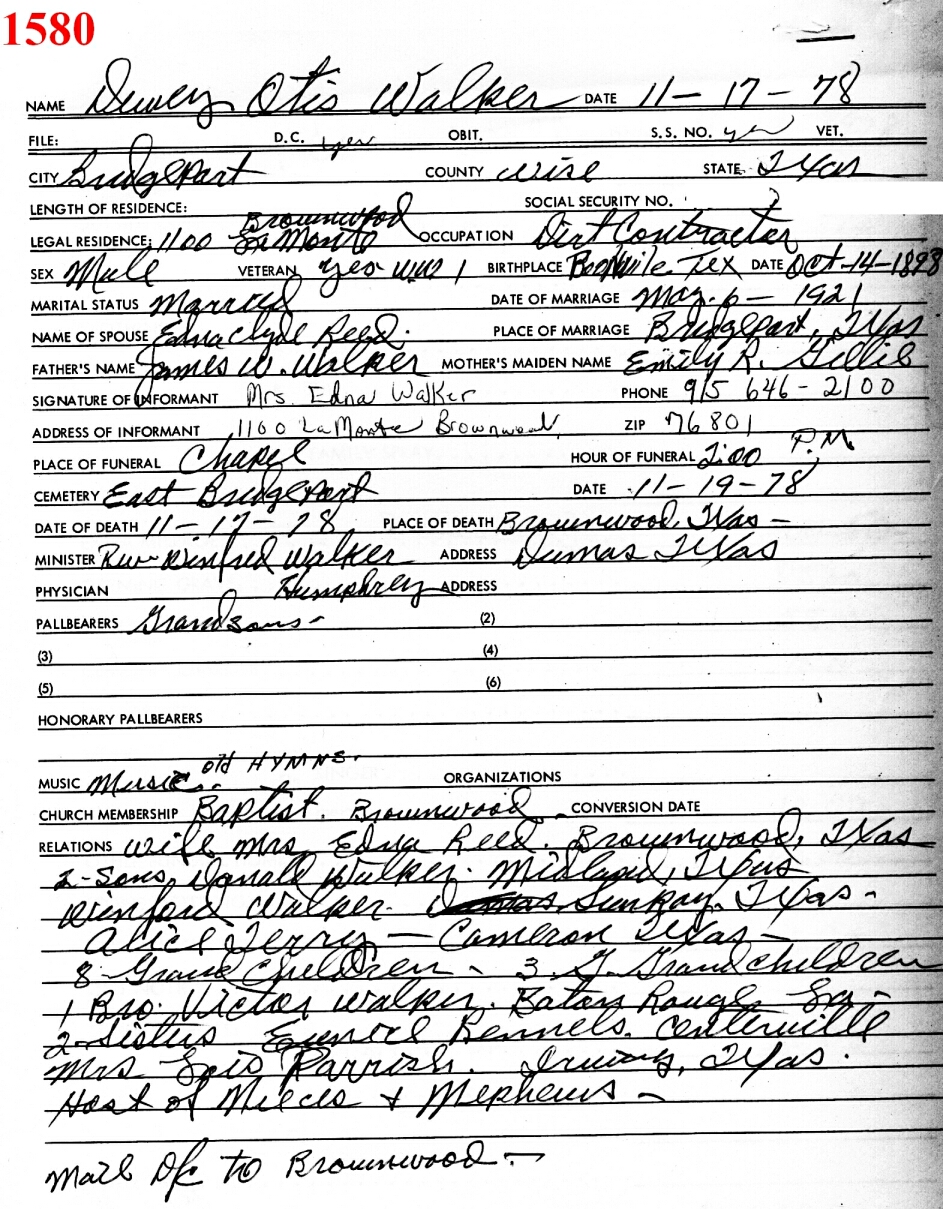 1580
NAME Dewey Otis Walker DATE 11-17-78
FILE: D.C. yes OBIT. S.S. NO. yes VET.
CITY Bridgeport COUNTY Wise STATE Texas
LENGTH OF RESIDENCE: SOCIAL SECURITY NO.
Brownwood
LEGAL RESIDENCE: 1100 La Monte OCCUPATION Dirt Contractor
SEX Male VETERAN yes WW 1 BIRTHPLACE Tex DATE Oct-14-1898
MARITAL STATUS Married DATE OF MARRIAGE May-6-1921
NAME OF SPOUSE Edna Clyde Reed. PLACE OF MARRIAGE Bridgeport, Texas
FATHER'S NAME James W. Walker MOTHER'S MAIDEN NAME Emily R. Gillis
SIGNATURE OF INFORMANT Mrs. Edna Walker PHONE 915 646-2100
ADDRESS OF INFORMANT 1100 LaMonte Brownwood, ZIP 76801
PLACE OF FUNERAL Chapel HOUR OF FUNERAL 2:00 P.M.
CEMETERY East Bridgeport DATE 11-19-78
DATE OF DEATH 11-17-78 PLACE OF DEATH Brownwood, Texas-
MINISTER Rev- Winfred Walker ADDRESS Dumas Texas
PHYSICIAN Humphrey ADDRESS
PALLBEARERS Grandsons- (2)
(3) (4)
(5) (6)
HONORARY PALLBEARERS
old HYMNS.
MUSIC Music.. ORGANIZATIONS
CHURCH MEMBERSHIP Baptist. Brownwood CONVERSION DATE
RELATIONS wife Mrs Edna Reed. Brownwood, Texas
2-Sons, Donald Walker. Midland, Texas
Winford Walker. Sunray, Texas-
Alice Terry - Cameron Texas-
8 Grand Children - 3. G. Grandchildren
1 Bro. Victor Walker. Baton Rouge, La-
2-Sisters Eunice Kennels. Centerville
Mrs Lois Parrish. Irving, Texas.
Host of Nieces + Nephews -
Mail D/c to Brownwood.-